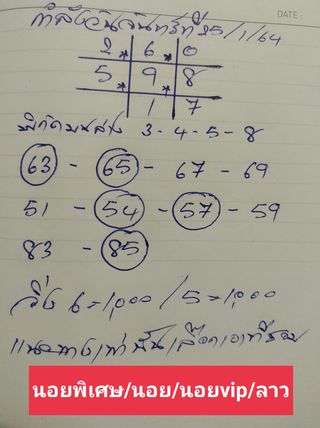 DATE:
กำลังวันจันทร์ที่ 25/1/64
2 * 6 0
5 * 9 * 8
1 7
พิกัดบนล่าง 3-4-5-8
63 - 65 - 67 - 69
51 - 54 - 57 - 59
83 - 85
วิ่ง 6=1,000 / 5=1,000
แนวทางเท่านั้น
นอยพิเศษ/นอย/นอยvip/ลาว